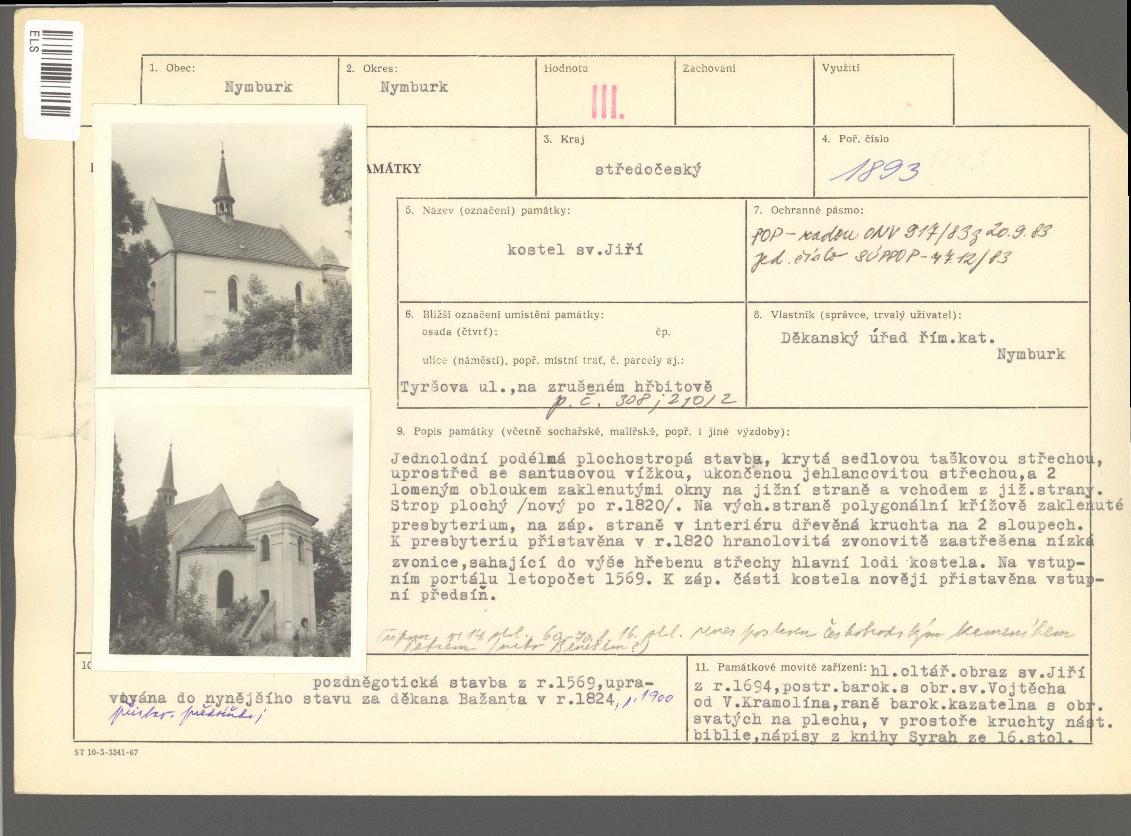 ELS
1. Obec:
Nymburk
2. Okres:
Nymburk
Hodnota
III.
Zachování
Využití
AMÁTKY
3. Kraj
středočeský
4. Poř. číslo
1893
5. Název (označení) památky:
kostel sv.Jiří
7. Ochranné pásmo:
POP - radou ONV 917/83 z 20.9.83
jed. číslo SÚPPOP - 4712/83
6. Bližší označení umístění památky:
osada (čtvrť): čp.
ulice (náměstí), popř. místní trať, č. parcely aj.:
Tyršova ul.,na zrušeném hřbitově
p. č. 308; 210/2
8. Vlastník (správce, trvalý uživatel):
Děkanský úřad řím.kat.
Nymburk
9. Popis památky (včetně sochařské, malířské, popř. i jiné výzdoby):
Jednolodní podélná plochostropá stavba, krytá sedlovou taškovou střechou,
uprostřed se santusovou vížkou, ukončenou jehlancovitou střechou,a 2
lomeným obloukem zaklenutými okny na jižní straně a vchodem z již.strany.
Strop plochý /nový po r.1820/. Na vých.straně polygonální křížově zaklenuté
presbyterium, na záp. straně v interiéru dřevěná kruchta na 2 sloupech.
K presbyteriu přistavěna v r.1820 hranolovitá zvonovitě zastřešena nízká
zvonice,sahající do výše hřebenu střechy hlavní lodi kostela. Na vstup-
ním portálu letopočet 1569. K záp. části kostela nověji přistavěna vstup-
ní předsíň.
14 16. českobrodským kameníkem
10
pozdněgotická stavba z r.1569,upra-
vována do nynějšího stavu za děkana Bažanta v r.1824, r. 1900
přistav. předsíňka;
11. Památkové movité zařízení: hl.oltář.obraz sv.Jiří
z r.1694,postr.barok.s obr.sv.Vojtěcha
od V.Kramolína,raně barok.kazatelna s obr.
svatých na plechu, v prostoře kruchty nást.
biblie,nápisy z knihy Syrah ze 16.stol.
ST 10-3-3341-67